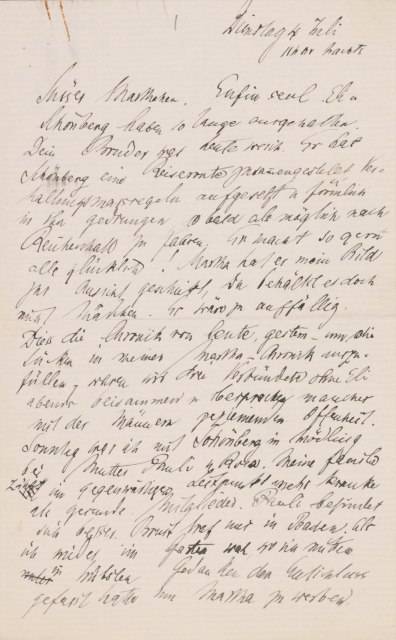 Dienstag Juli
11 Uhr nachts
Süsses Marthchen. Enfin seul. Eli u
Schönberg haben so lange ausgehalten.
Dein Bruder war heute weich. Er hat
Schönberg eine Reiseroute zusammengestellt, Ver-
haltungsmassregeln aufgesetzt u förmlich
in ihn gedrungen sobald als möglich nach
Reichenhall zu fahren. Er macht so gern
alle glücklich. Martha hat es mein Bild
zur Ansicht geschickt, Du behältst es doch
nicht Er wäre zu auffällig.
Dies die Chronik von heute, gestern um die
Lücken in meiner Martha-Chronik auszu-
füllen, waren wir drei Verbündete ohne Eli
abends beisammen u besprachen mancher
mit der Männern geziemenden Offenheit.
Sonntag war ich mit Schönberg in Mödling
bei Mutter Pauli u Rosa. Meine Familie
zählt im gegenwärtigen Zeitpunkt mehr kranke
als gesunde Mitglieder. Pauli befindet
sich besser. traf nur in Baden. Als
ich wieder im Garten war wo ich neben
in Gedanken den Entschluss
gefasst hatte um Martha zu werben